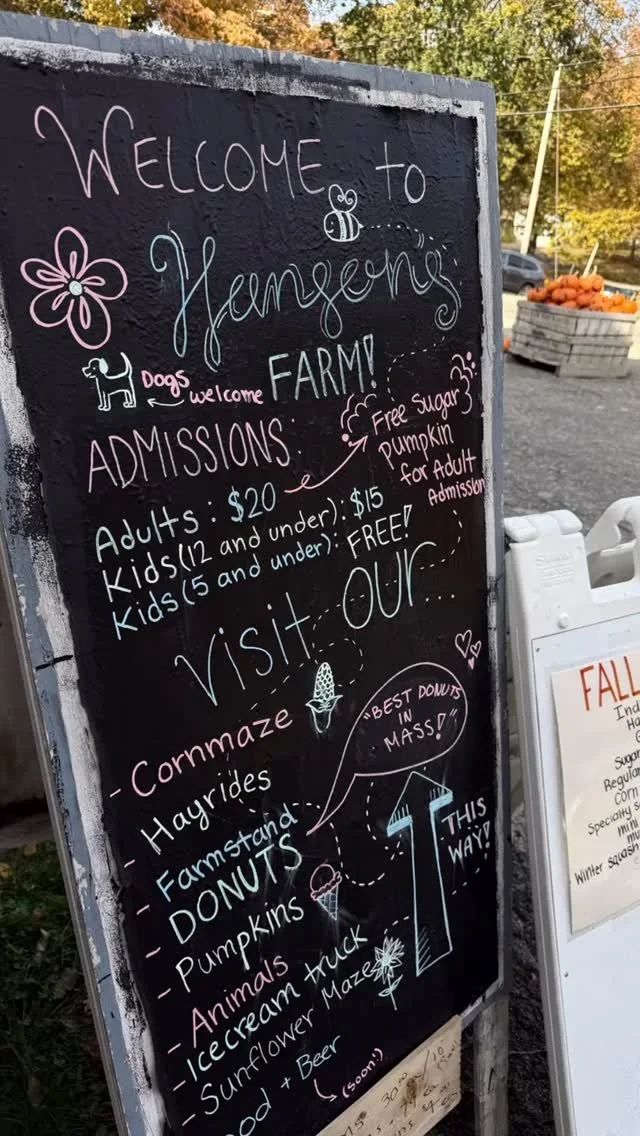 WELCOME to
Hanson's
FARM!
Dogs welcome
ADMISSIONS:
Free Sugar
pumpkin
for Adult
Admission
Adults: $20
Kids (12 and under): $15
Kids (5 and under): FREE!
Visit our...
- Cornmaze
"BEST DONUTS
IN
MASS!"
- Hayrides
- Farmstand
- DONUTS
THIS
WAY!
- Pumpkins
- Animals
- Icecream truck
- Sunflower Maze
ood + Beer
(soon!)
FALL
Ind
Sugar
Regula
Corn
Specialty
mini
Winter squash